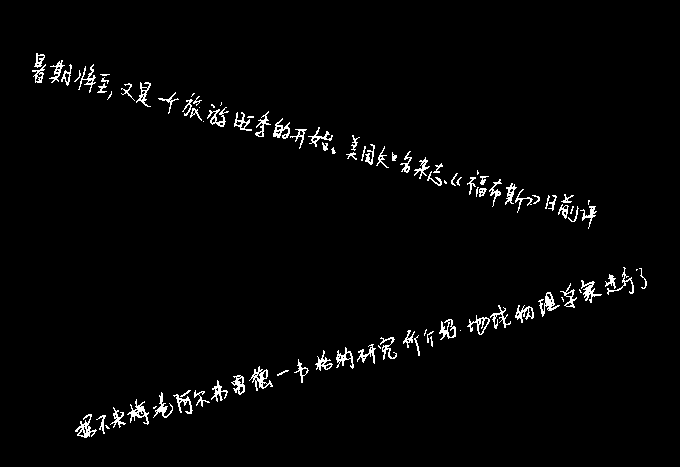 暑期将至,又是一个旅游旺季的开始。美国知名杂志《福布斯》日前评
据不来梅港阿尔弗雷德一韦格纳研究所介绍.地球物理学家进行了